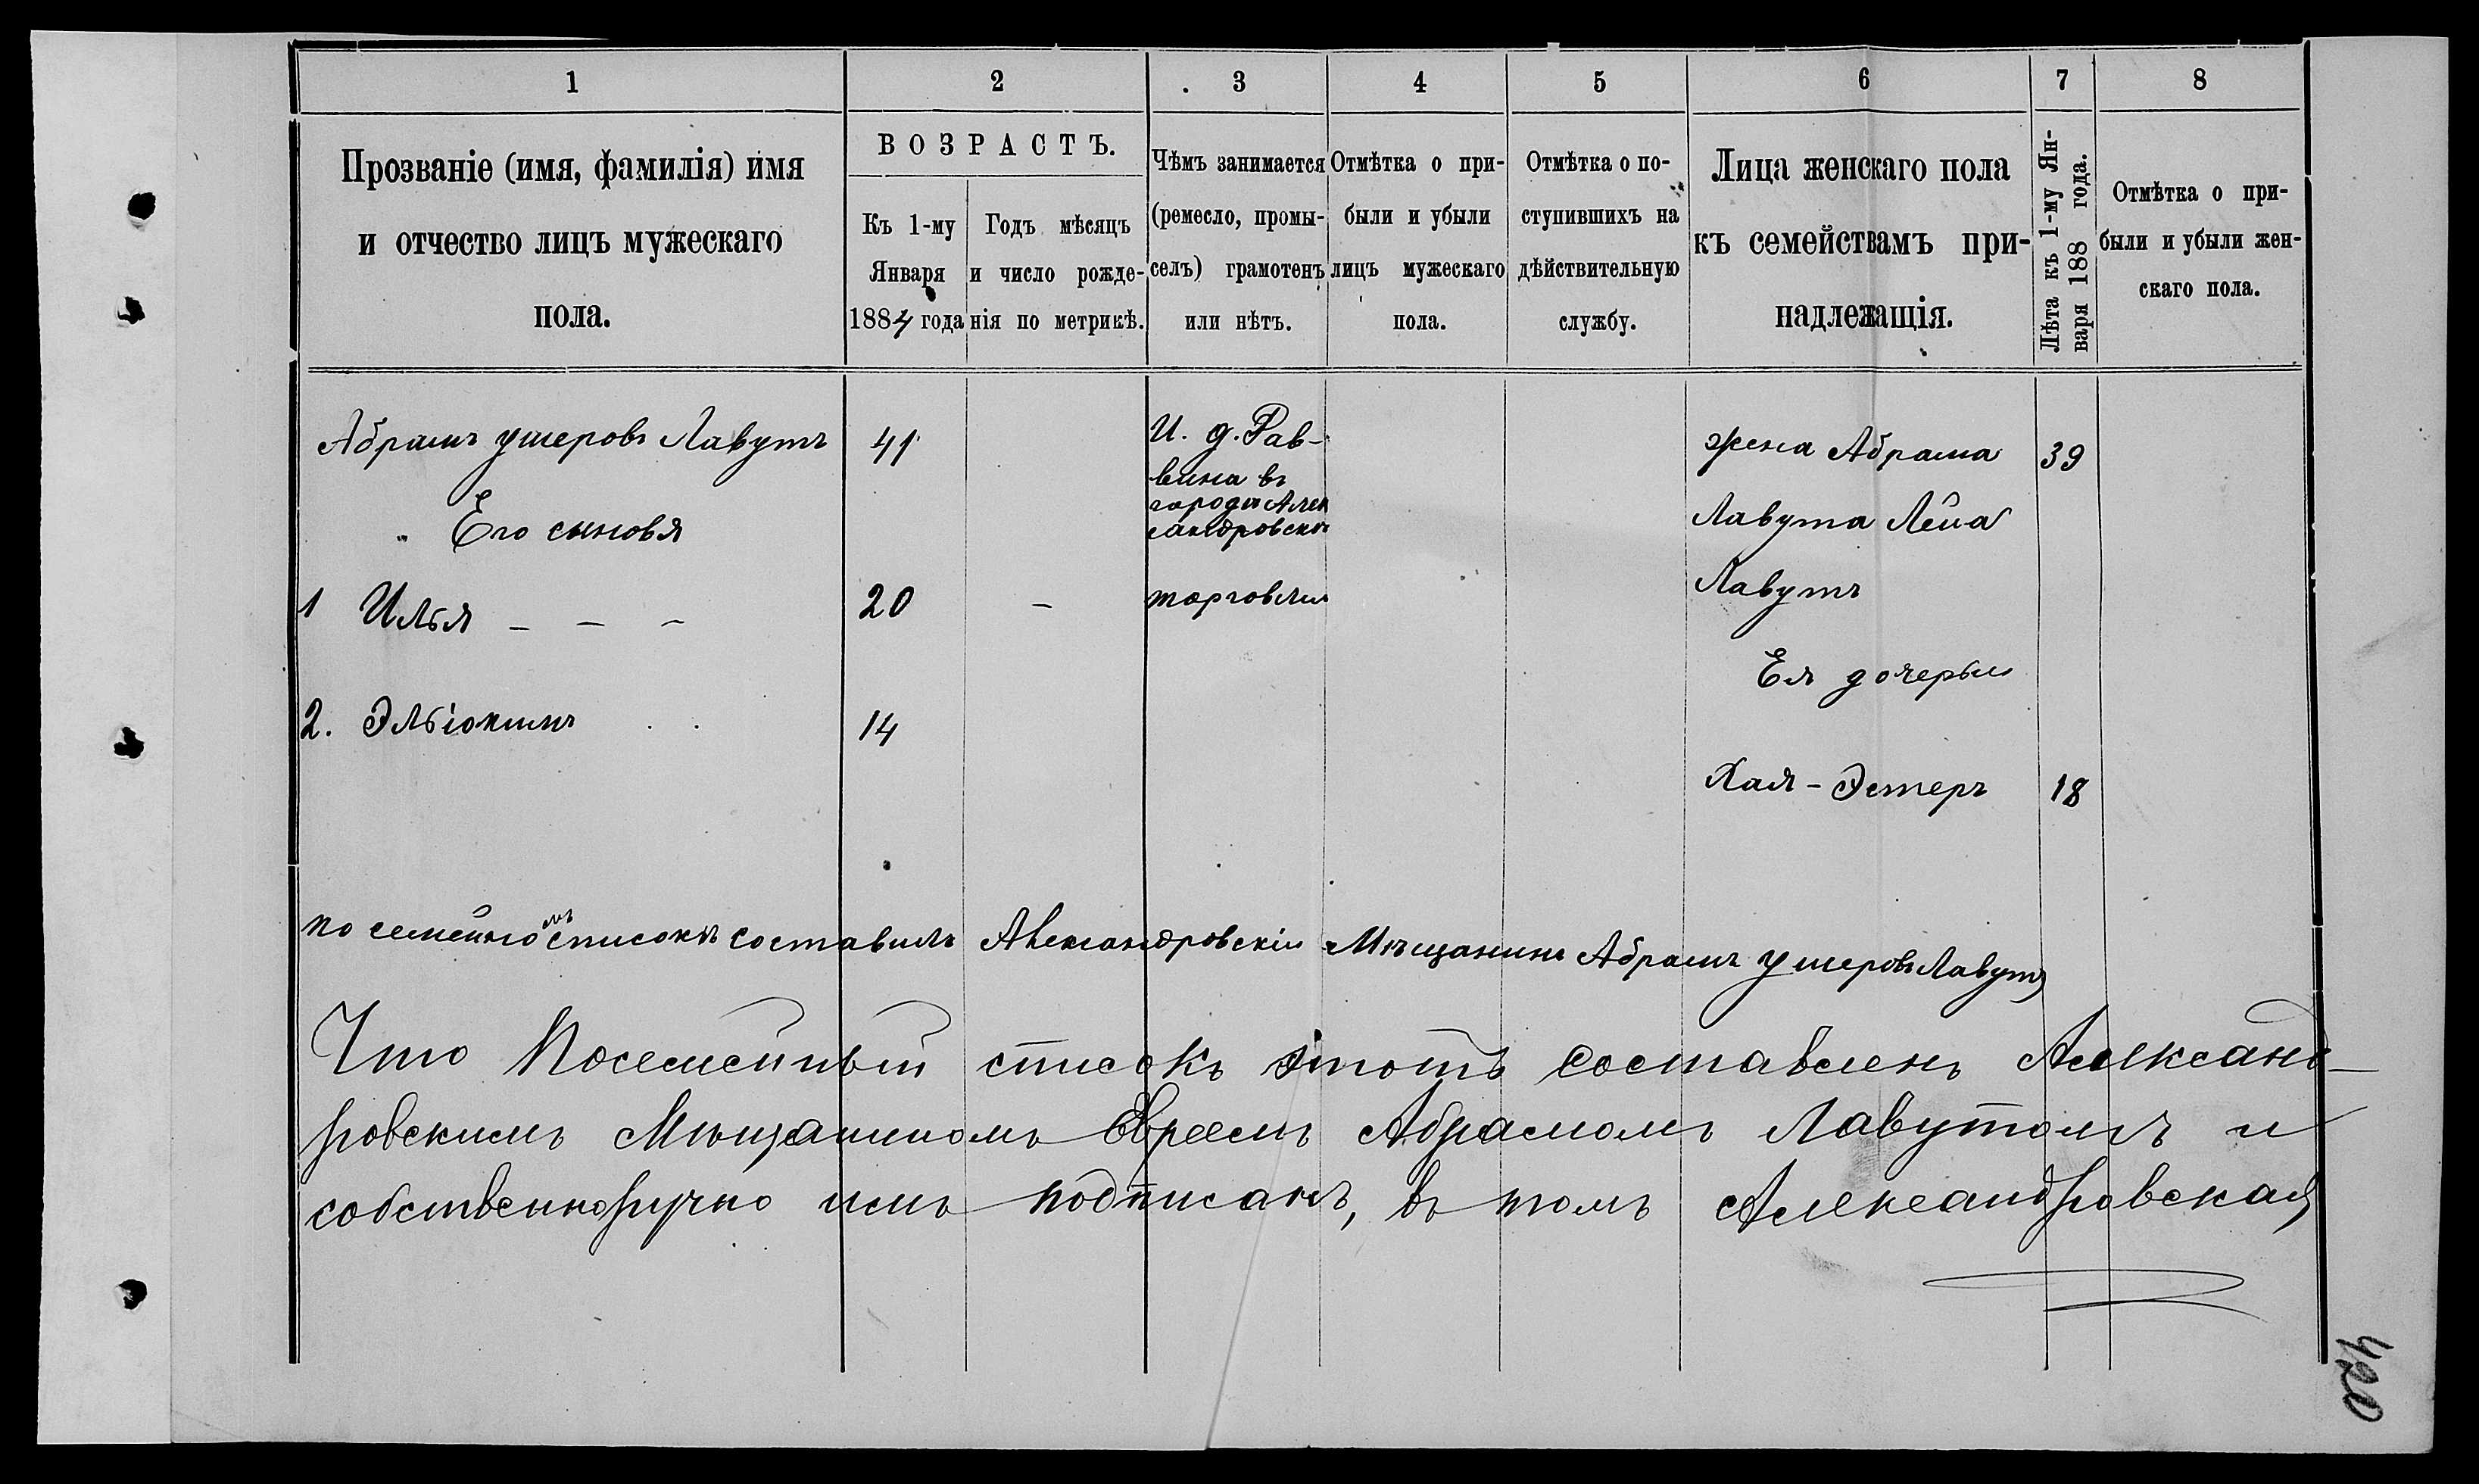 1 2 3 4 5 6 7 8
Прозваніе (имя, фамилія) имя
и отчество лицъ мужескаго
пола.
ВОЗРАСТЪ.
Къ 1-му
Января
1884 года
Годъ мѣсяцъ
и число рожде-
нія по метрикѣ.
Чѣмъ занимается
(ремесло, промы-
селъ) грамотенъ
или нѣтъ.
Отмѣтка о при-
были и убыли
лицъ мужескаго
пола.
Отмѣтка о по-
ступившихъ на
дѣйствительную
службу.
Лица женскаго пола
къ семействамъ при-
надлежащія.
Лѣта къ 1-му Ян-
варя 188 года.
Отмѣтка о при-
были и убыли жен-
скаго пола.
Абрамъ Ушеровъ Лавутъ 41
И. д. Рав-
вина въ
городѣ Алек
сандровскѣ
жена Абрама 39
Лавута Лея
Лавутъ
Его сыновя
1 Илья — — — 20 — торговли
Ея дочерьи
2. Эльіокимъ 14
Хая-Эстеръ 18
по семейномъ списокъ составилъ Александровскіи Мѣщанинъ Абрамъ Ушеровъ Лавутъ
Что Посемейный списокъ этотъ составленъ Александ-
ровскимъ Мѣщаниномъ Евреемъ Абрамомъ Лавутомъ и
собственноручно имъ подписанъ, въ томъ Александровская
420